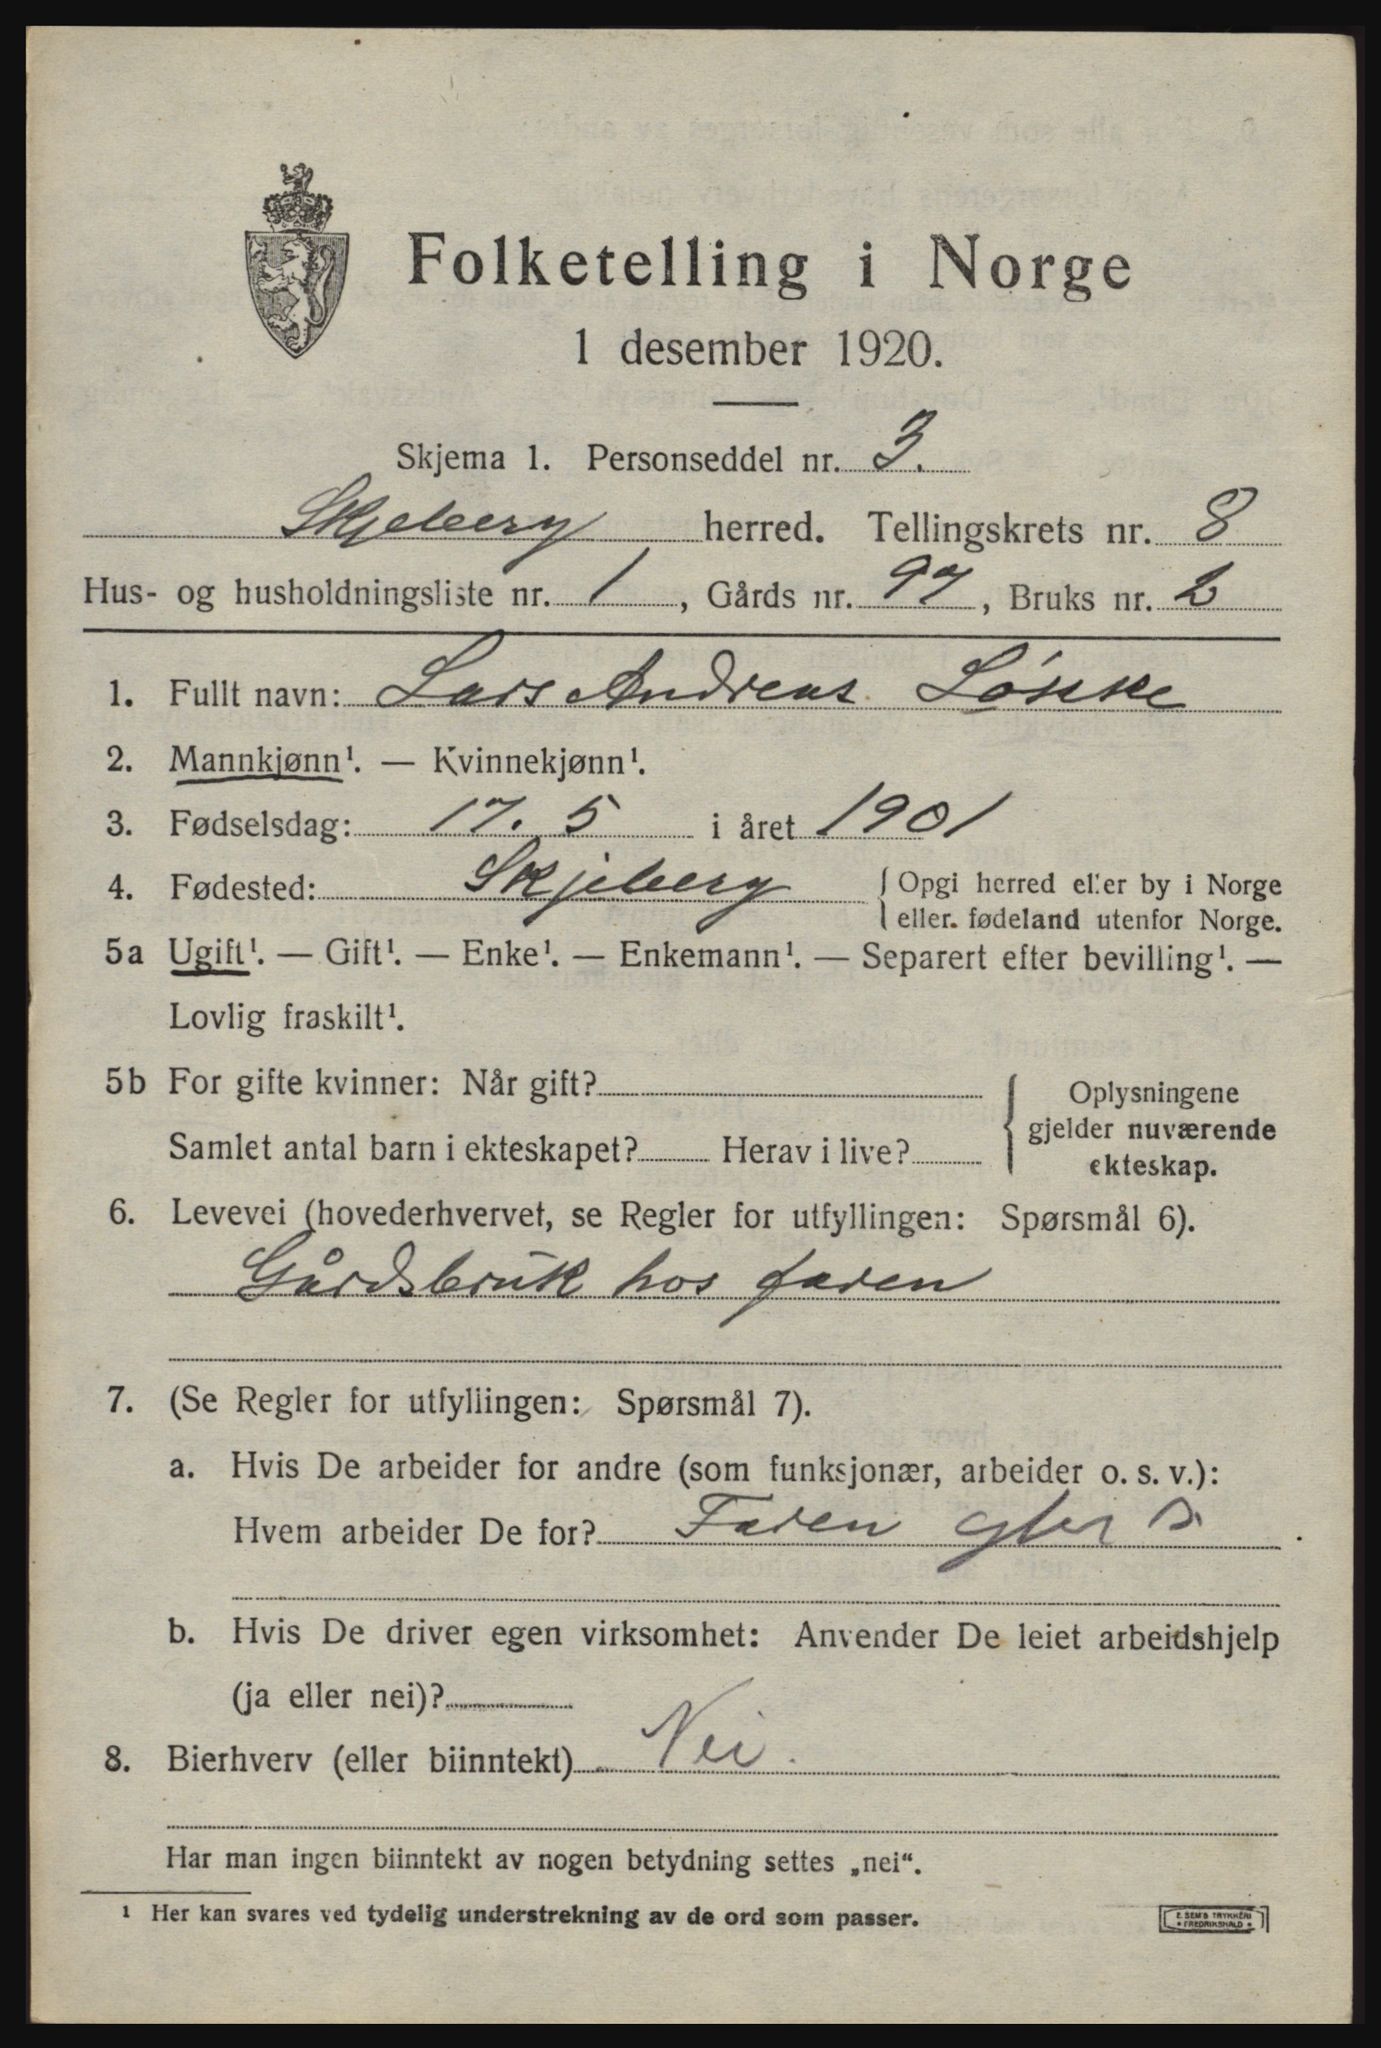 Folketelling i Norge
1 desember 1920.
Skjema 1. Personseddel nr. 3.
Skjeberg herred. Tellingskrets nr. 8
Hus- og husholdningsliste nr. 1, Gårds nr. 97, Bruks nr. 2
1. Fullt navn: Lars Andreas Løkke
2. Mannkjønn¹. — Kvinnekjønn¹.
3. Fødselsdag: 17. 5 i året 1901
4. Fødested: Skjeberg { Opgi herred eller by i Norge
eller fødeland utenfor Norge.
5a Ugift¹. — Gift¹. — Enke¹. — Enkemann¹. — Separert efter bevilling¹. —
Lovlig fraskilt¹.
5b For gifte kvinner: Når gift?
Samlet antal barn i ekteskapet? Herav i live?
Oplysningene
gjelder nuværende
ekteskap.
6. Levevei (hovederhvervet, se Regler for utfyllingen: Spørsmål 6).
Gårdsbruk hos faren
7. (Se Regler for utfyllingen: Spørsmål 7).
a. Hvis De arbeider for andre (som funksjonær, arbeider o. s. v.):
Hvem arbeider De for? Faren
b. Hvis De driver egen virksomhet: Anvender De leiet arbeidshjelp
(ja eller nei)?
8. Bierhverv (eller biinntekt) Nei.
Har man ingen biinntekt av nogen betydning settes „nei“.
¹ Her kan svares ved tydelig understrekning av de ord som passer.
E. SEM'S TRYKKERI
• FREDRIKSHALD •